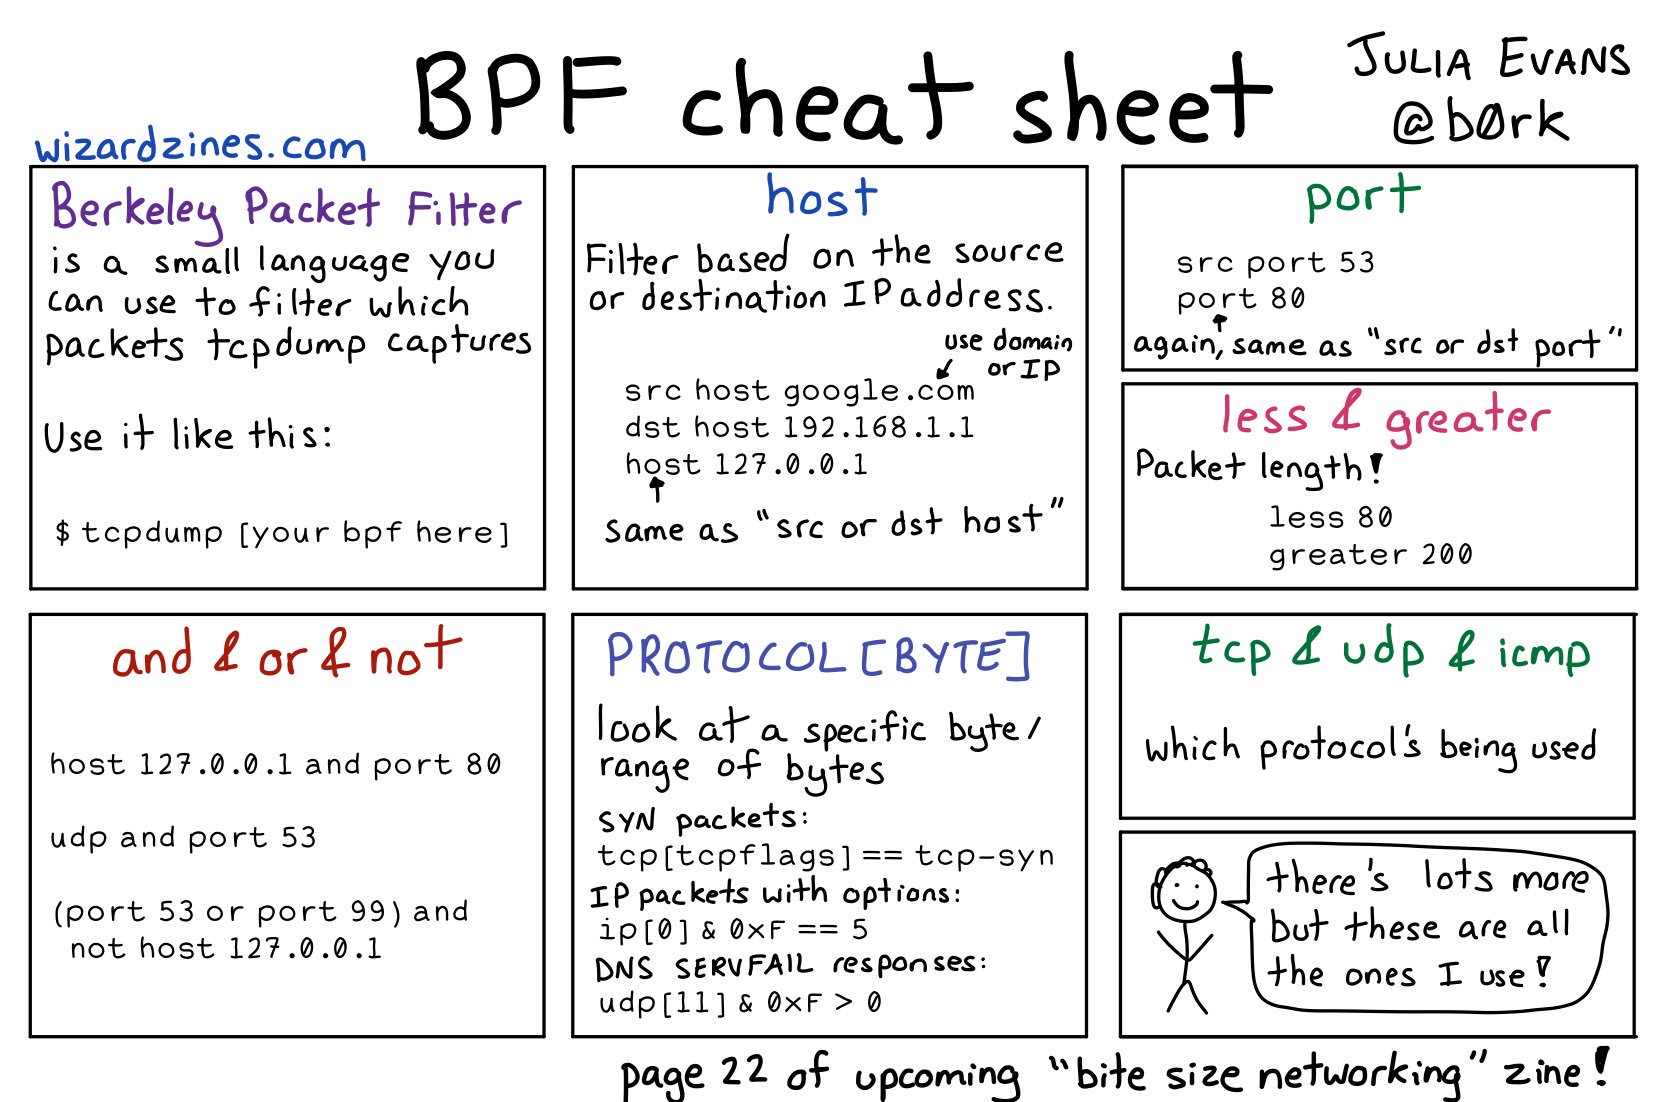 BPF cheat sheet
JULIA EVANS
@b0rk
wizardzines.com
Berkeley Packet Filter
is a small language you
can use to filter which
packets tcpdump captures
Use it like this:
$ tcpdump [your bpf here]
host
Filter based on the source
or destination IP address.
use domain
or IP
src host google.com
dst host 192.168.1.1
host 127.0.0.1
same as "src or dst host"
port
src port 53
port 80
again, same as "src or dst port"
less & greater
Packet length!
less 80
greater 200
and & or & not
host 127.0.0.1 and port 80
udp and port 53
(port 53 or port 99) and
not host 127.0.0.1
PROTOCOL[BYTE]
look at a specific byte/
range of bytes
SYN packets:
tcp[tcpflags] == tcp-syn
IP packets with options:
ip[0] & 0xF == 5
DNS SERVFAIL responses:
udp[11] & 0xF > 0
tcp & udp & icmp
which protocol's being used
there's lots more
but these are all
the ones I use!
page 22 of upcoming "bite size networking" zine!